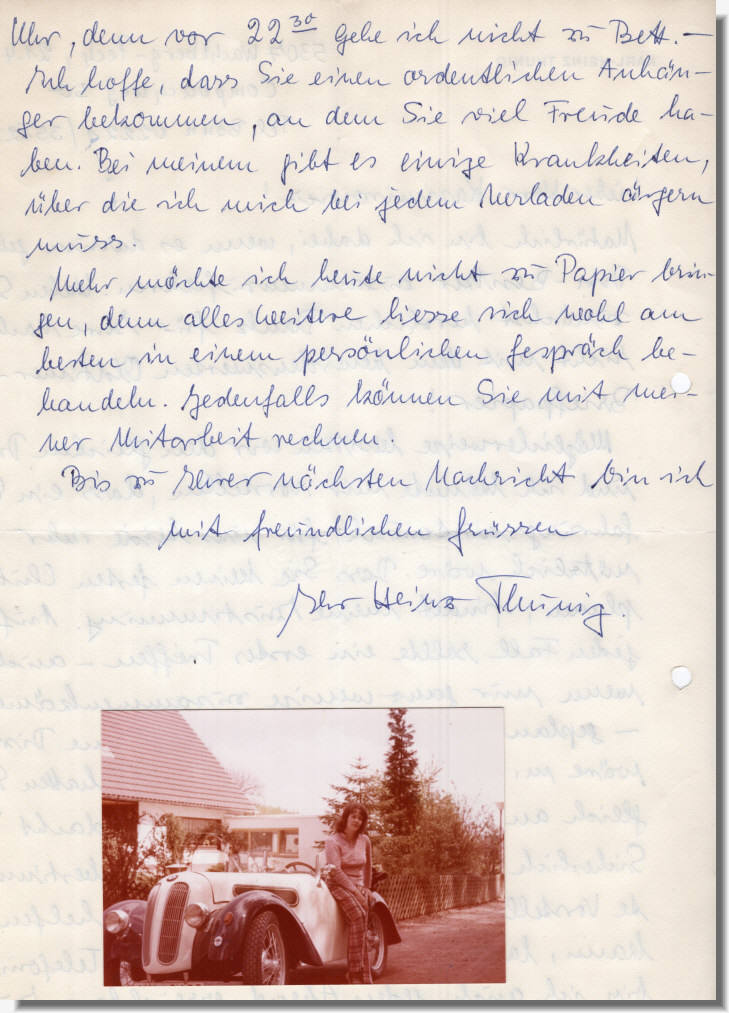 Uhr, denn vor 22³⁰ gehe ich nicht zu Bett. –
Ich hoffe, dass Sie einen ordentlichen Anhän-
ger bekommen, an dem Sie viel Freude ha-
ben. Bei meinem gibt es einige Krankheiten,
über die ich mich bei jedem Verladen ärgern
muss.
Mehr möchte ich heute nicht zu Papier brin-
gen, denn alles Weitere liesse sich wohl am
besten in einem persönlichen Gespräch be-
handeln. Jedenfalls können Sie mit mei-
ner Mitarbeit rechnen.
Bis zu Ihrer nächsten Nachricht bin ich
mit freundlichen Grüssen
Ihr Heinz Thunig.